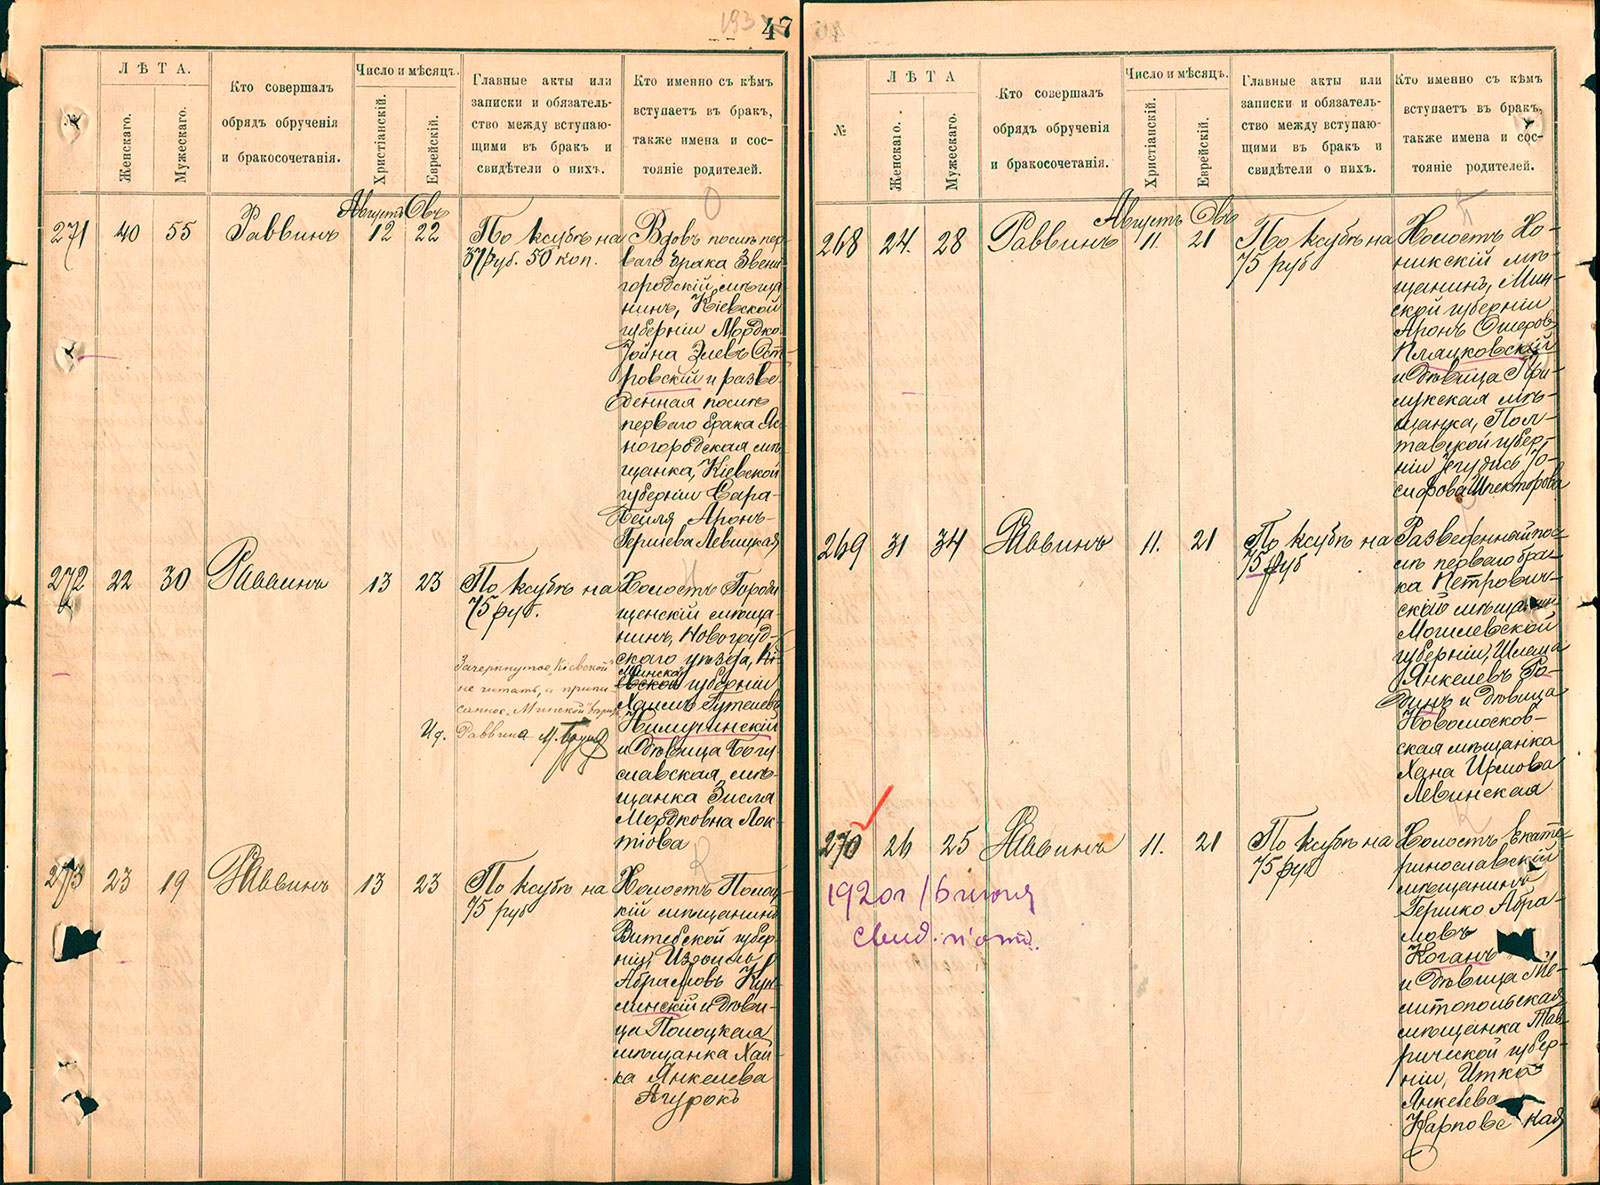 193
47
ЛѢТА.
Кто совершалъ
обрядъ обрученія
и бракосочетанія.
Число и мѣсяцъ.
Главные акты или
записки и обязатель-
ство между вступаю-
щими въ бракъ и
свидѣтели о нихъ.
Кто именно съ кѣмъ
вступаетъ въ бракъ,
также имена и сос-
тояніе родителей.
№
Женскаго.
Мужескаго.
Христіанскій.
Еврейскій.
271
40
55
Раввинъ
Августъ
12
Овъ
22
По ксубѣ на
37 руб. 50 коп.
Вдовъ послѣ пер-
ваго брака Звени-
городскій мѣща-
нинъ, Кіевской
губерніи Мордко-
Іойна Элевъ Ост-
ровскій и разве-
денная послѣ
перваго брака Яс-
ногородская мѣ-
щанка, Кіевской
губерніи Сара-
Бейля Аронъ-
Гершева Левицкая
272
22
30
Раввинъ
13
23
По ксубѣ на
75 руб.
Зачеркнутое „Кіевской“
не читать, а припи-
санное „Минской“
И.д. Раввина
Холостъ Городи-
щенскій мѣща-
нинъ, Новогруд-
скаго уѣзда, Кі-
Минской
евской губерніи
Хаимъ Гутелевъ
и дѣвица Богу-
славская мѣ-
щанка Зисля
Мордковна Лок-
тіова
273
23
19
Раввинъ
13
23
По ксубѣ на
75 руб
Холостъ Полоц-
кій мѣщанинъ
Витебской губер-
ніи, Израиль
Абрамовъ
и дѣви-
ца Полоцкая
мѣщанка Хай-
ка Янкелева
Агурокъ
№
ЛѢТА
Женскаго.
Мужескаго.
Кто совершалъ
обрядъ обрученія
и бракосочетанія.
Число и мѣсяцъ.
Христіанскій.
Еврейскій.
Главные акты или
записки и обязатель-
ство между вступаю-
щими въ бракъ и
свидѣтели о нихъ.
Кто именно съ кѣмъ
вступаетъ въ бракъ,
также имена и сос-
тояніе родителей.
268
24.
28
Раввинъ
Августъ
11.
Овъ
21
По ксубѣ на
75 руб
Холостъ Хо-
никскій мѣ-
щанинъ, Мин-
ской губерніи
Аронъ Ошеровъ
Плацковскій
и дѣвица При-
лукская мѣ-
щанка, Пол-
тавской губер-
ніи Ягудисъ Іо-
сифова Шпекторова
269
31
34
Раввинъ
11.
21
По ксубѣ на
75 руб
Разведенный пос-
лѣ перваго бра-
ка Петрович-
скій мѣщанинъ
Могилевской
губерніи, Шлема
Янкелевъ Ро-
динъ и дѣвица
Новомосков-
ская мѣщанка
Хана Ирмова
Левинская
270
26
25
Раввинъ
11.
21
По ксубѣ на
75 руб
1920г 16 июля
свид. п'от.
Холостъ Екате-
ринославскій
мѣщанинъ
Гершко Абра-
мовъ
Коганъ
и дѣвица Ме-
литопольская
мѣщанка Тав-
рической губер-
ніи, Итка
Янкелева
Карповская